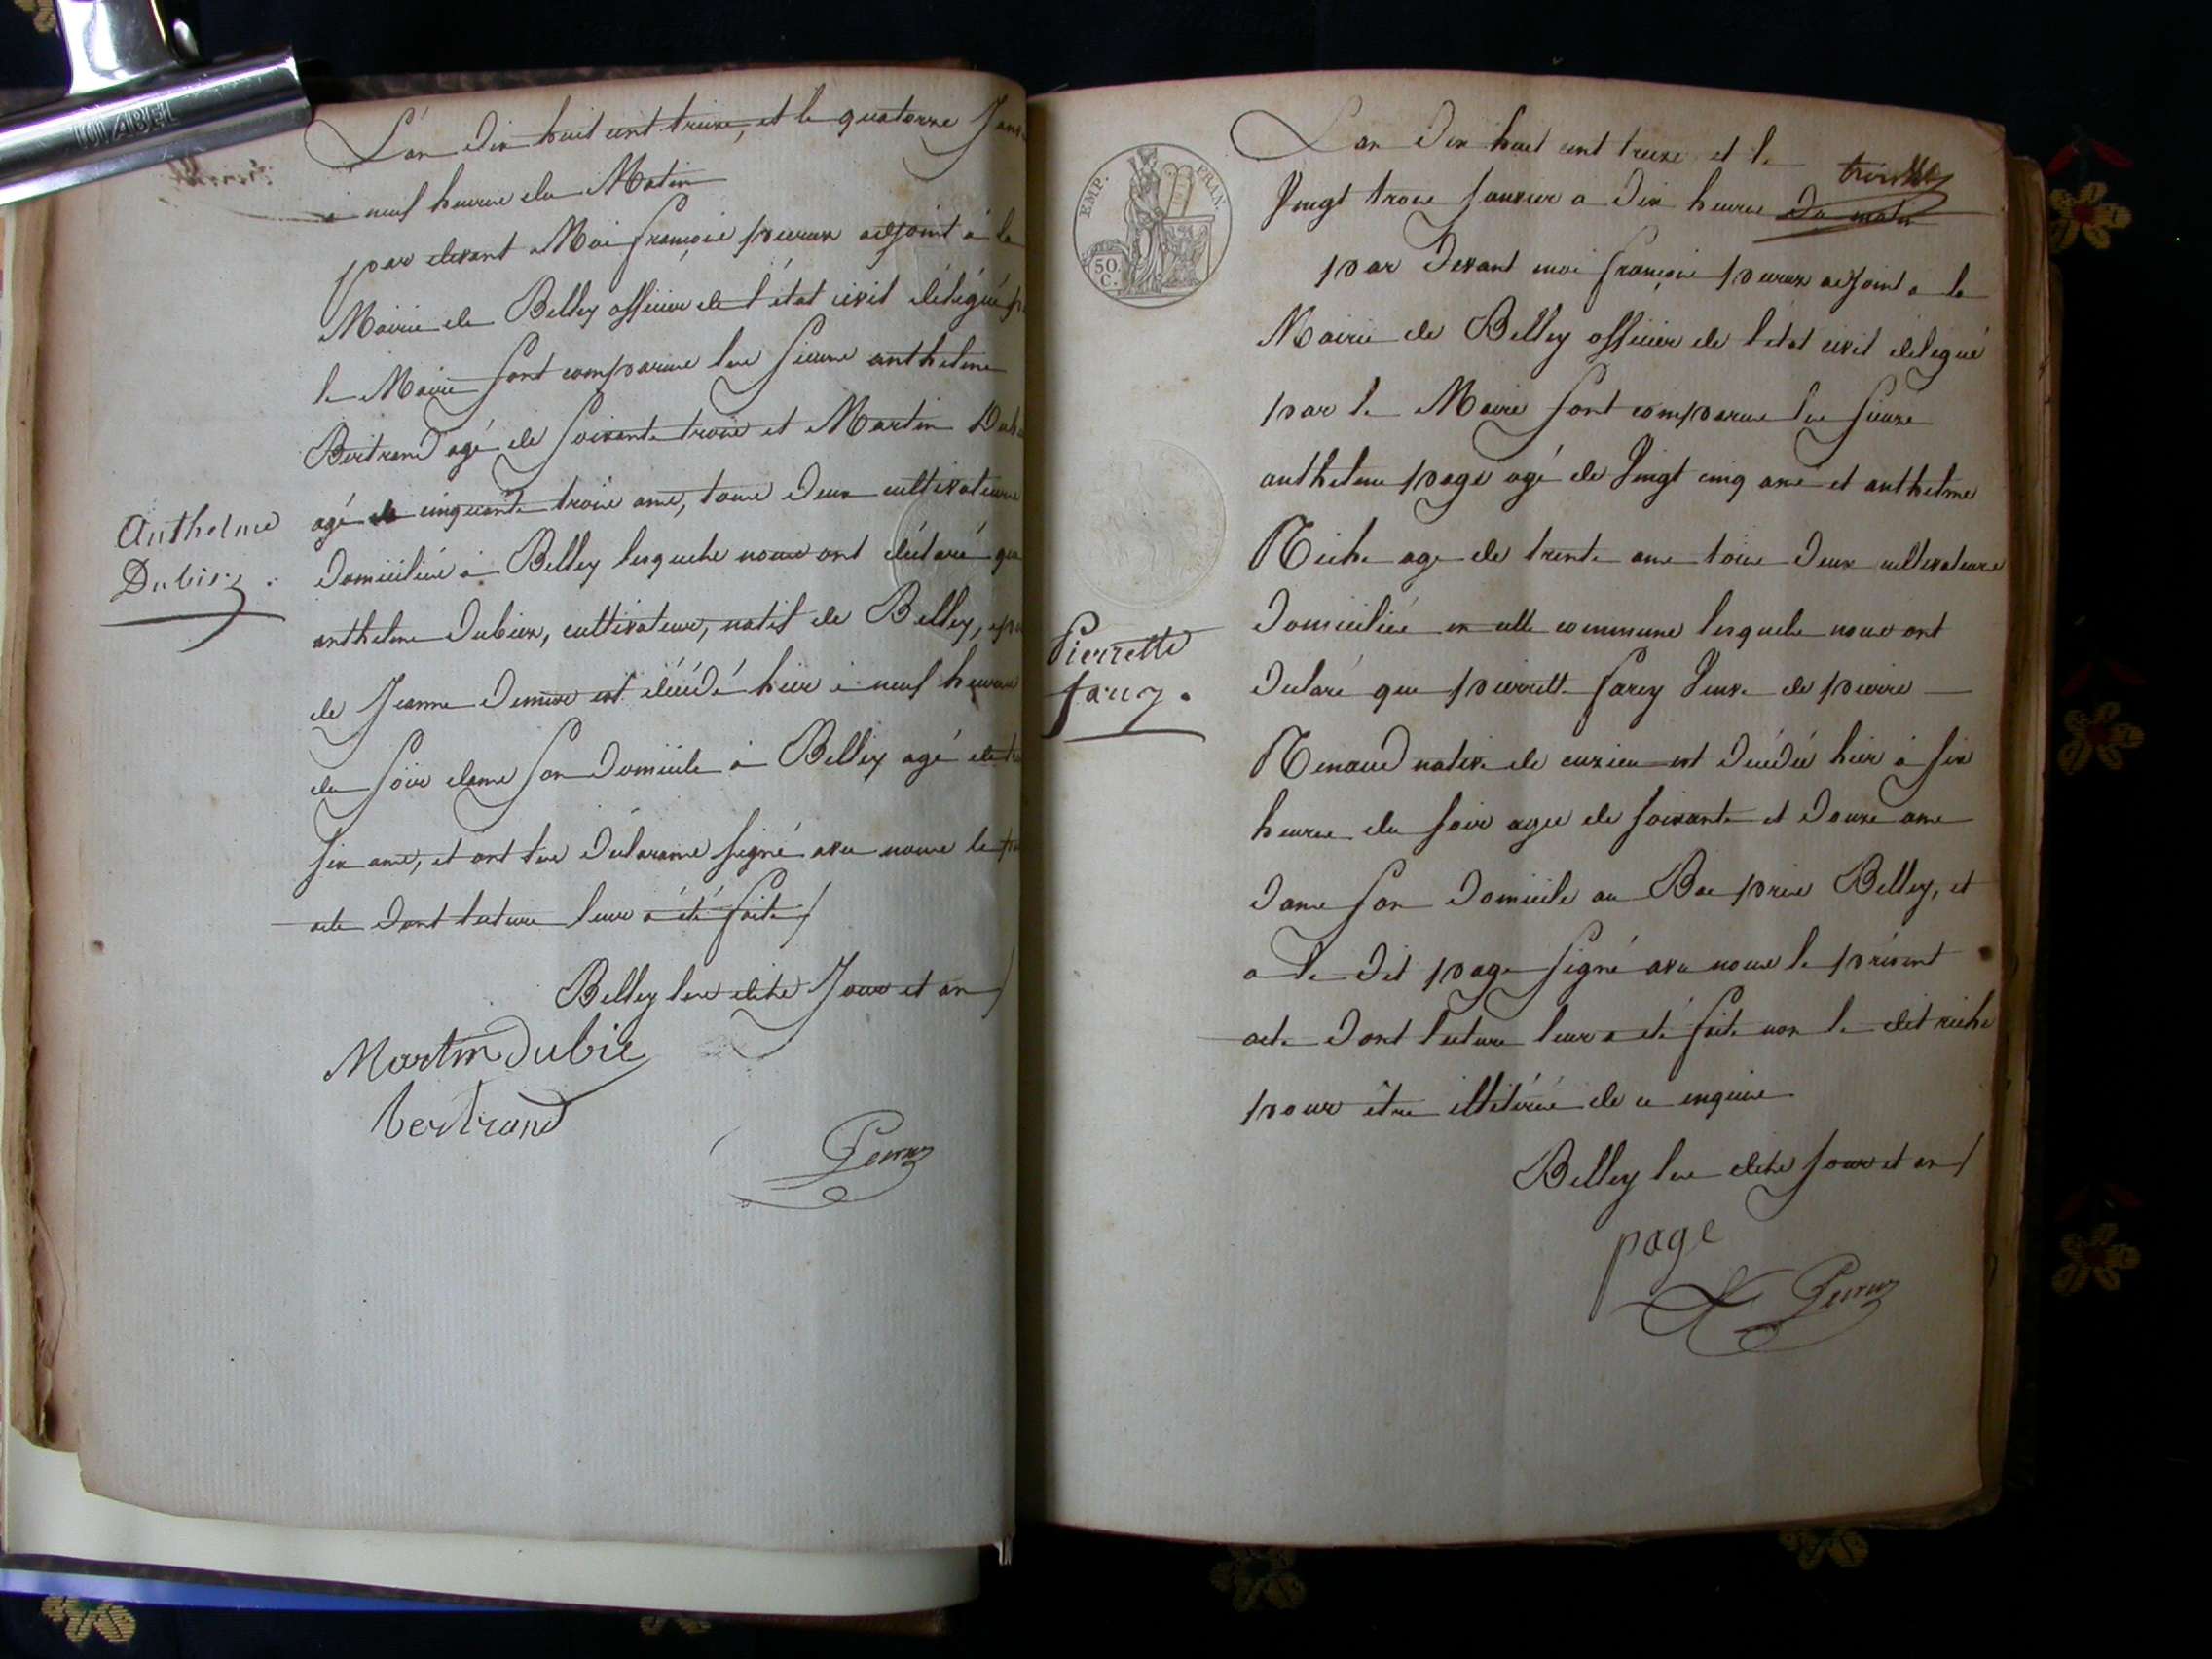 L'an dix huit cent treize, et le quatorze Janv
à neuf heures du Matin
par devant Moi françois peuvex adjoint à la
Mairie de Belley officier de l'état civil délégué p
le Maire sont comparus les sieurs anthelme
Bertrand agé de soixante trois et Martin Dub
agé de cinquante trois ans, tous deux cultivateurs
Anthelme
Dubiez.
domiciliés à Belley lesquels nous ont déclaré que
anthelme Dubiez, cultivateur, natif de Belley, epo
de Jeanne est décédé hier à neuf heures
du soir dans son domicile à Belley agé de
six ans, et ont les déclarans signé avec nous le
acte dont lecture leur a été faite
Belley les dits Jour et an
Martin Dubie
bertrand
EMP. FRAN.
50 C.
L'an dix huit cent treize et le
vingt trois Janvier a dix heures du matin
par devant moi françois adjoint a la
Mairie de Belley officier de l'état civil délégué
par le Maire sont comparus les sieurs
anthelme page agé de vingt cinq ans et anthelme
Riche agé de trente ans tous deux cultivateurs
domiciliés en cette commune lesquels nous ont
Pierrette
farcy.
déclaré que pierrette farcy veuve de pierre
Renaud native de cuzieu est décédée hier à six
heures du soir agée de soixante et douze ans
dans son domicile au Bac près Belley, et
a le dit page signé avec nous le présent
acte dont lecture leur a été faite non le dit riche
pour être illitéré de ce enquis
Belley les dits Jour et an
page